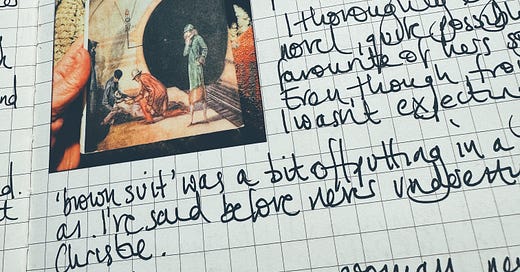 I thoroughly
novel, quite possibly
favourite of hers so
Even though, from
I wasn't expecting
and
'brown suit' was a bit offputting in a
as I've said before never underestim
Christie.
woman